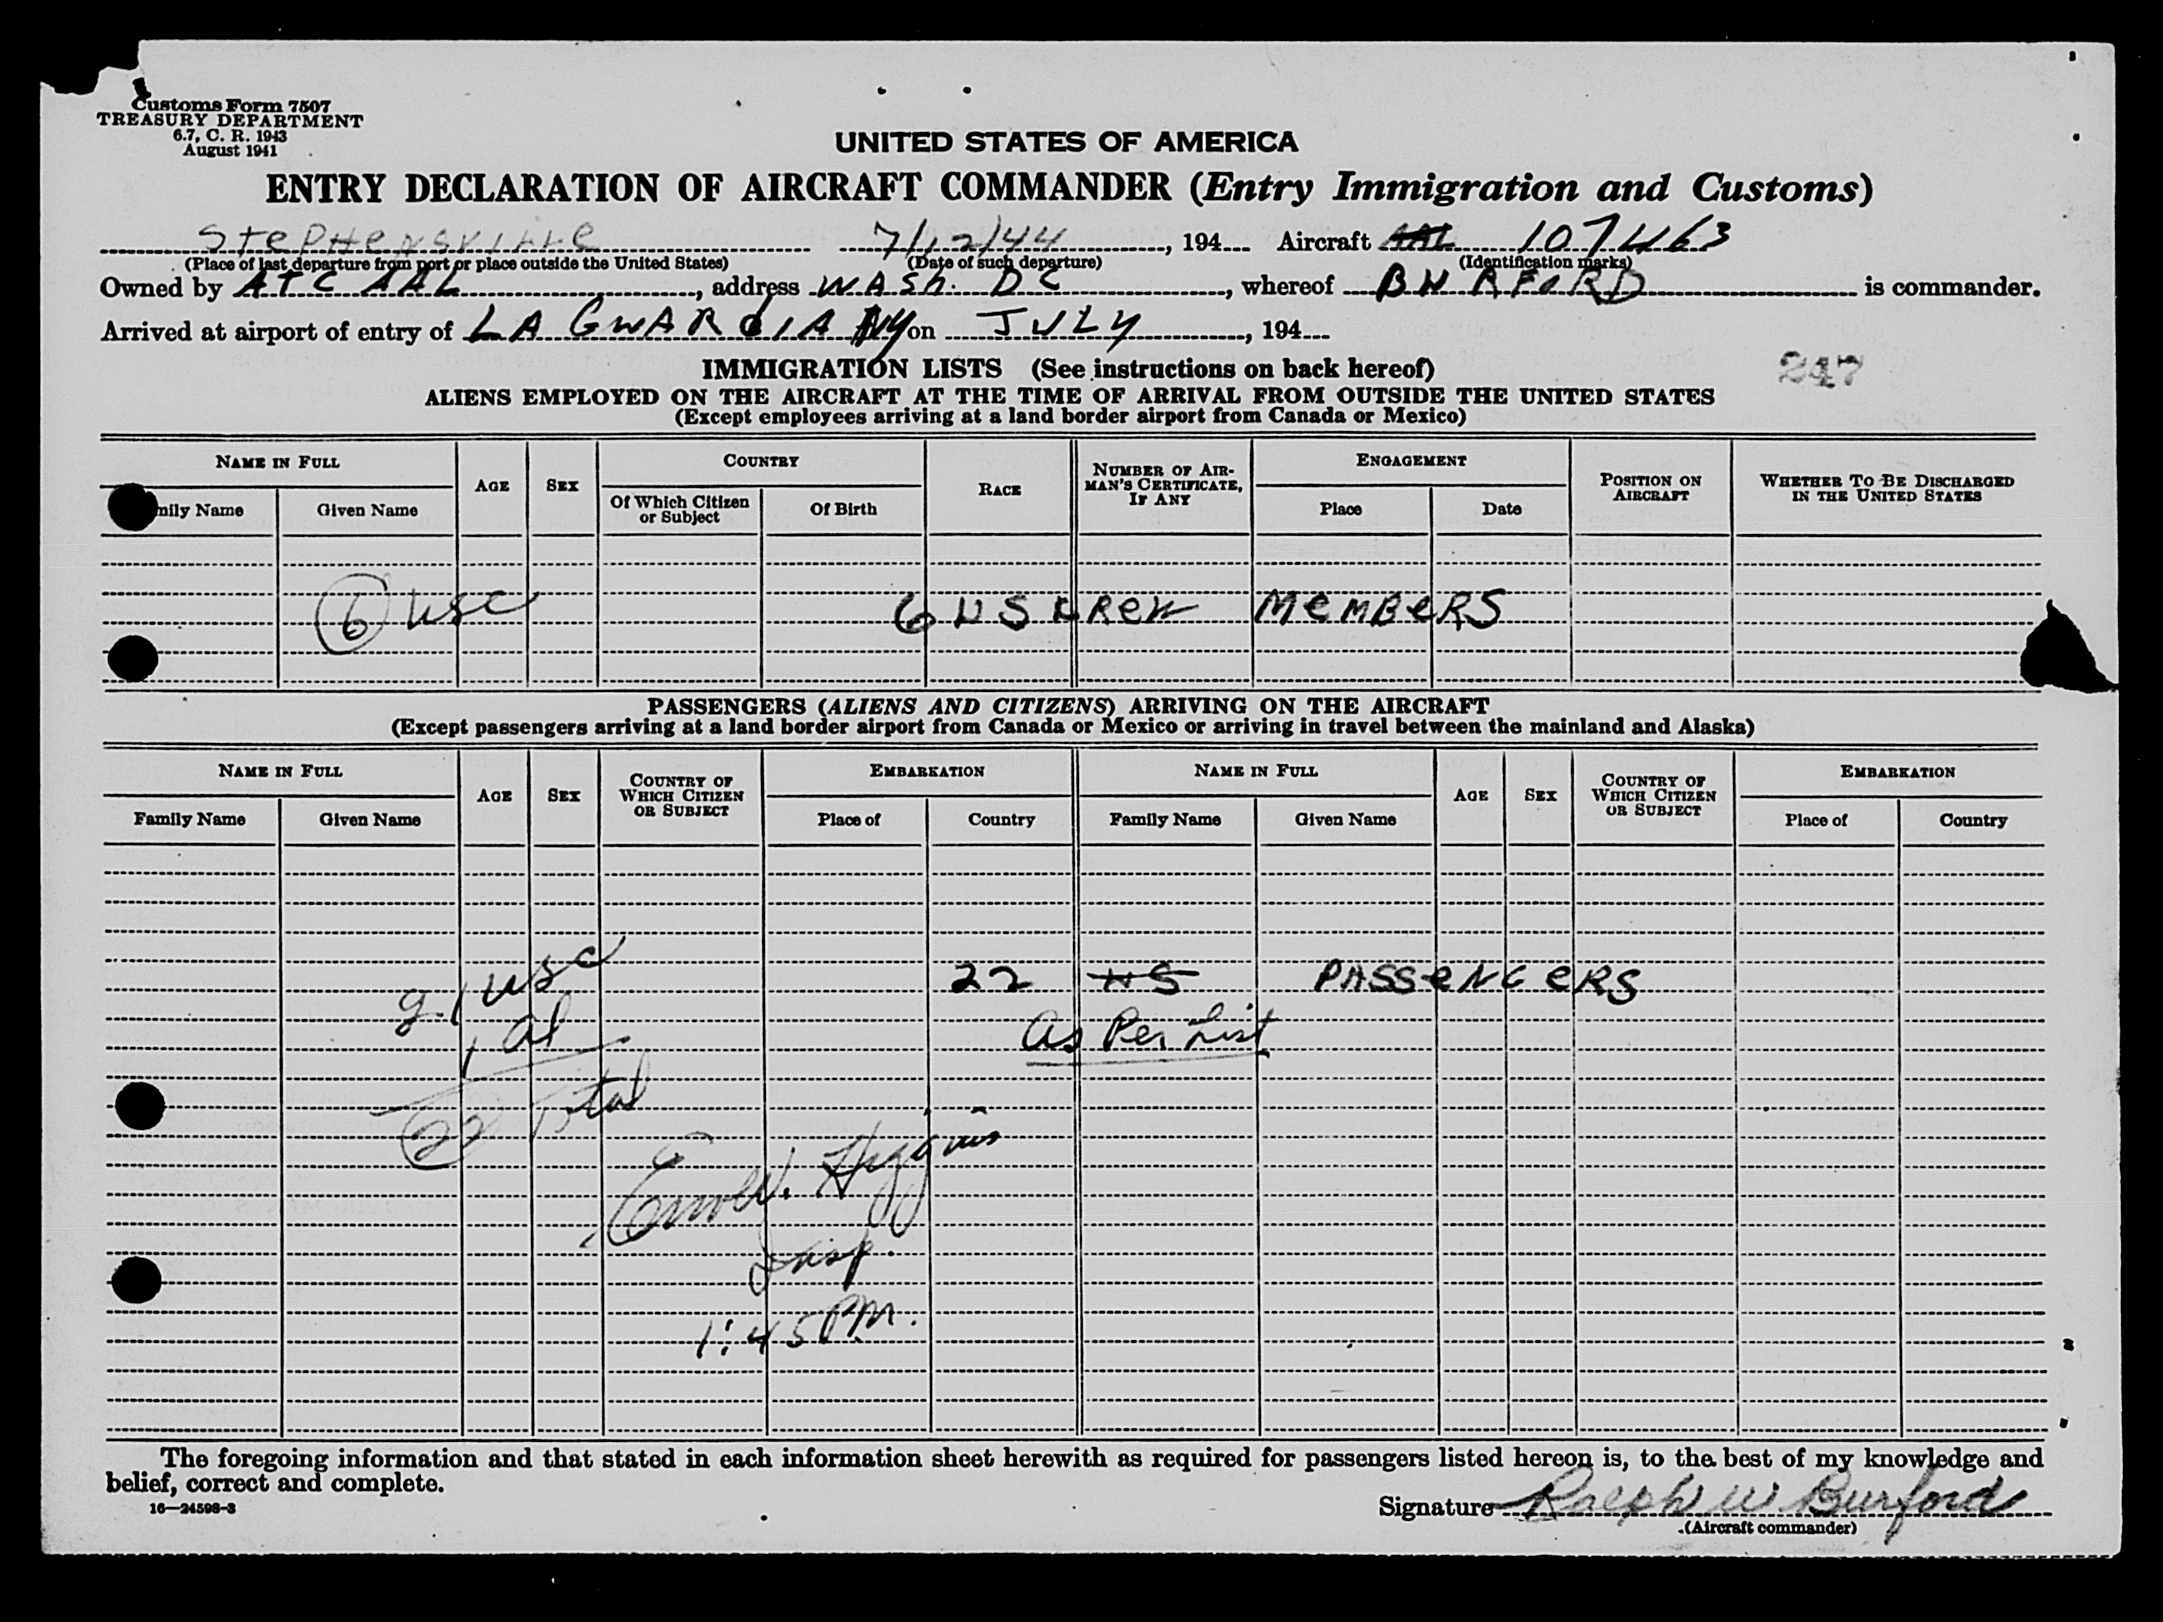 Customs Form 7507
TREASURY DEPARTMENT
6.7, C. R. 1943
August 1941
UNITED STATES OF AMERICA
ENTRY DECLARATION OF AIRCRAFT COMMANDER (Entry Immigration and Customs)
StePHeNSVILLe 7/12/44, 194 Aircraft AAL 107463
(Place of last departure from port or place outside the United States) (Date of such departure) (Identification marks)
Owned by ATC AAL, address WASh. DC, whereof BURFORD is commander.
Arrived at airport of entry of LA GUARDIA NY on JULY, 194
IMMIGRATION LISTS (See instructions on back hereof)
247
ALIENS EMPLOYED ON THE AIRCRAFT AT THE TIME OF ARRIVAL FROM OUTSIDE THE UNITED STATES
(Except employees arriving at a land border airport from Canada or Mexico)
NAME IN FULL AGE SEX COUNTRY RACE NUMBER OF AIRMAN'S CERTIFICATE, IF ANY ENGAGEMENT POSITION ON AIRCRAFT WHETHER TO BE DISCHARGED IN THE UNITED STATES
mily Name Given Name Of Which Citizen or Subject Of Birth Place Date
6 USC 6 US CReW MeMBeRS
PASSENGERS (ALIENS AND CITIZENS) ARRIVING ON THE AIRCRAFT
(Except passengers arriving at a land border airport from Canada or Mexico or arriving in travel between the mainland and Alaska)
NAME IN FULL AGE SEX COUNTRY OF WHICH CITIZEN OR SUBJECT EMBARKATION NAME IN FULL AGE SEX COUNTRY OF WHICH CITIZEN OR SUBJECT EMBARKATION
Family Name Given Name Place of Country Family Name Given Name Place of Country
USC 22 US PASSeNGeRS
1 al As Per List
22 Total
Higgins
Insp.
1:45 PM.
The foregoing information and that stated in each information sheet herewith as required for passengers listed hereon is, to the best of my knowledge and
belief, correct and complete.
16—24598-3
Signature Ralph W Burford
(Aircraft commander)